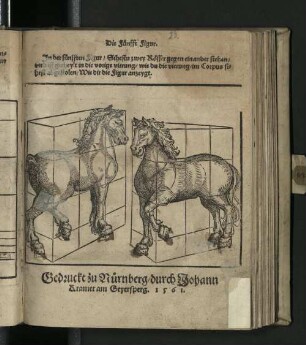 Die Fünfft Figur.
In der fünfften Figur / Sihestu zwey Rösser gegen einander stehen /
in die vorige vierung / wie du die vierung im Corpus
Wie dir die Figur anzeygt.
Gedruckt zu Nürnberg / durch Johann
Kramer am Geyersperg. 1561.